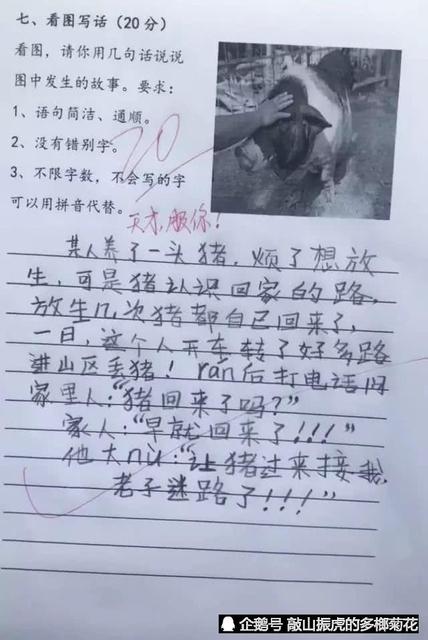 七、看图写话(20分)
看图，请你用几句话说说
图中发生的故事。要求：
1、语句简洁、通顺。
2、没有错别字。
3、不限字数，不会写的字
可以用拼音代替。
20
天才，服你！
某人养了一头猪，烦了想放
生，可是猪认识回家的路，
放生几次猪都自己回来了，
一日，这个人开车转了好多路
进山区丢猪！rán后打电话问
家里人：“猪回来了吗？”
家人：“早就回来了！！！”
他大nù：“让猪过来接我，
老子迷路了！！！”
企鹅号 敲山振虎的多榔菊花